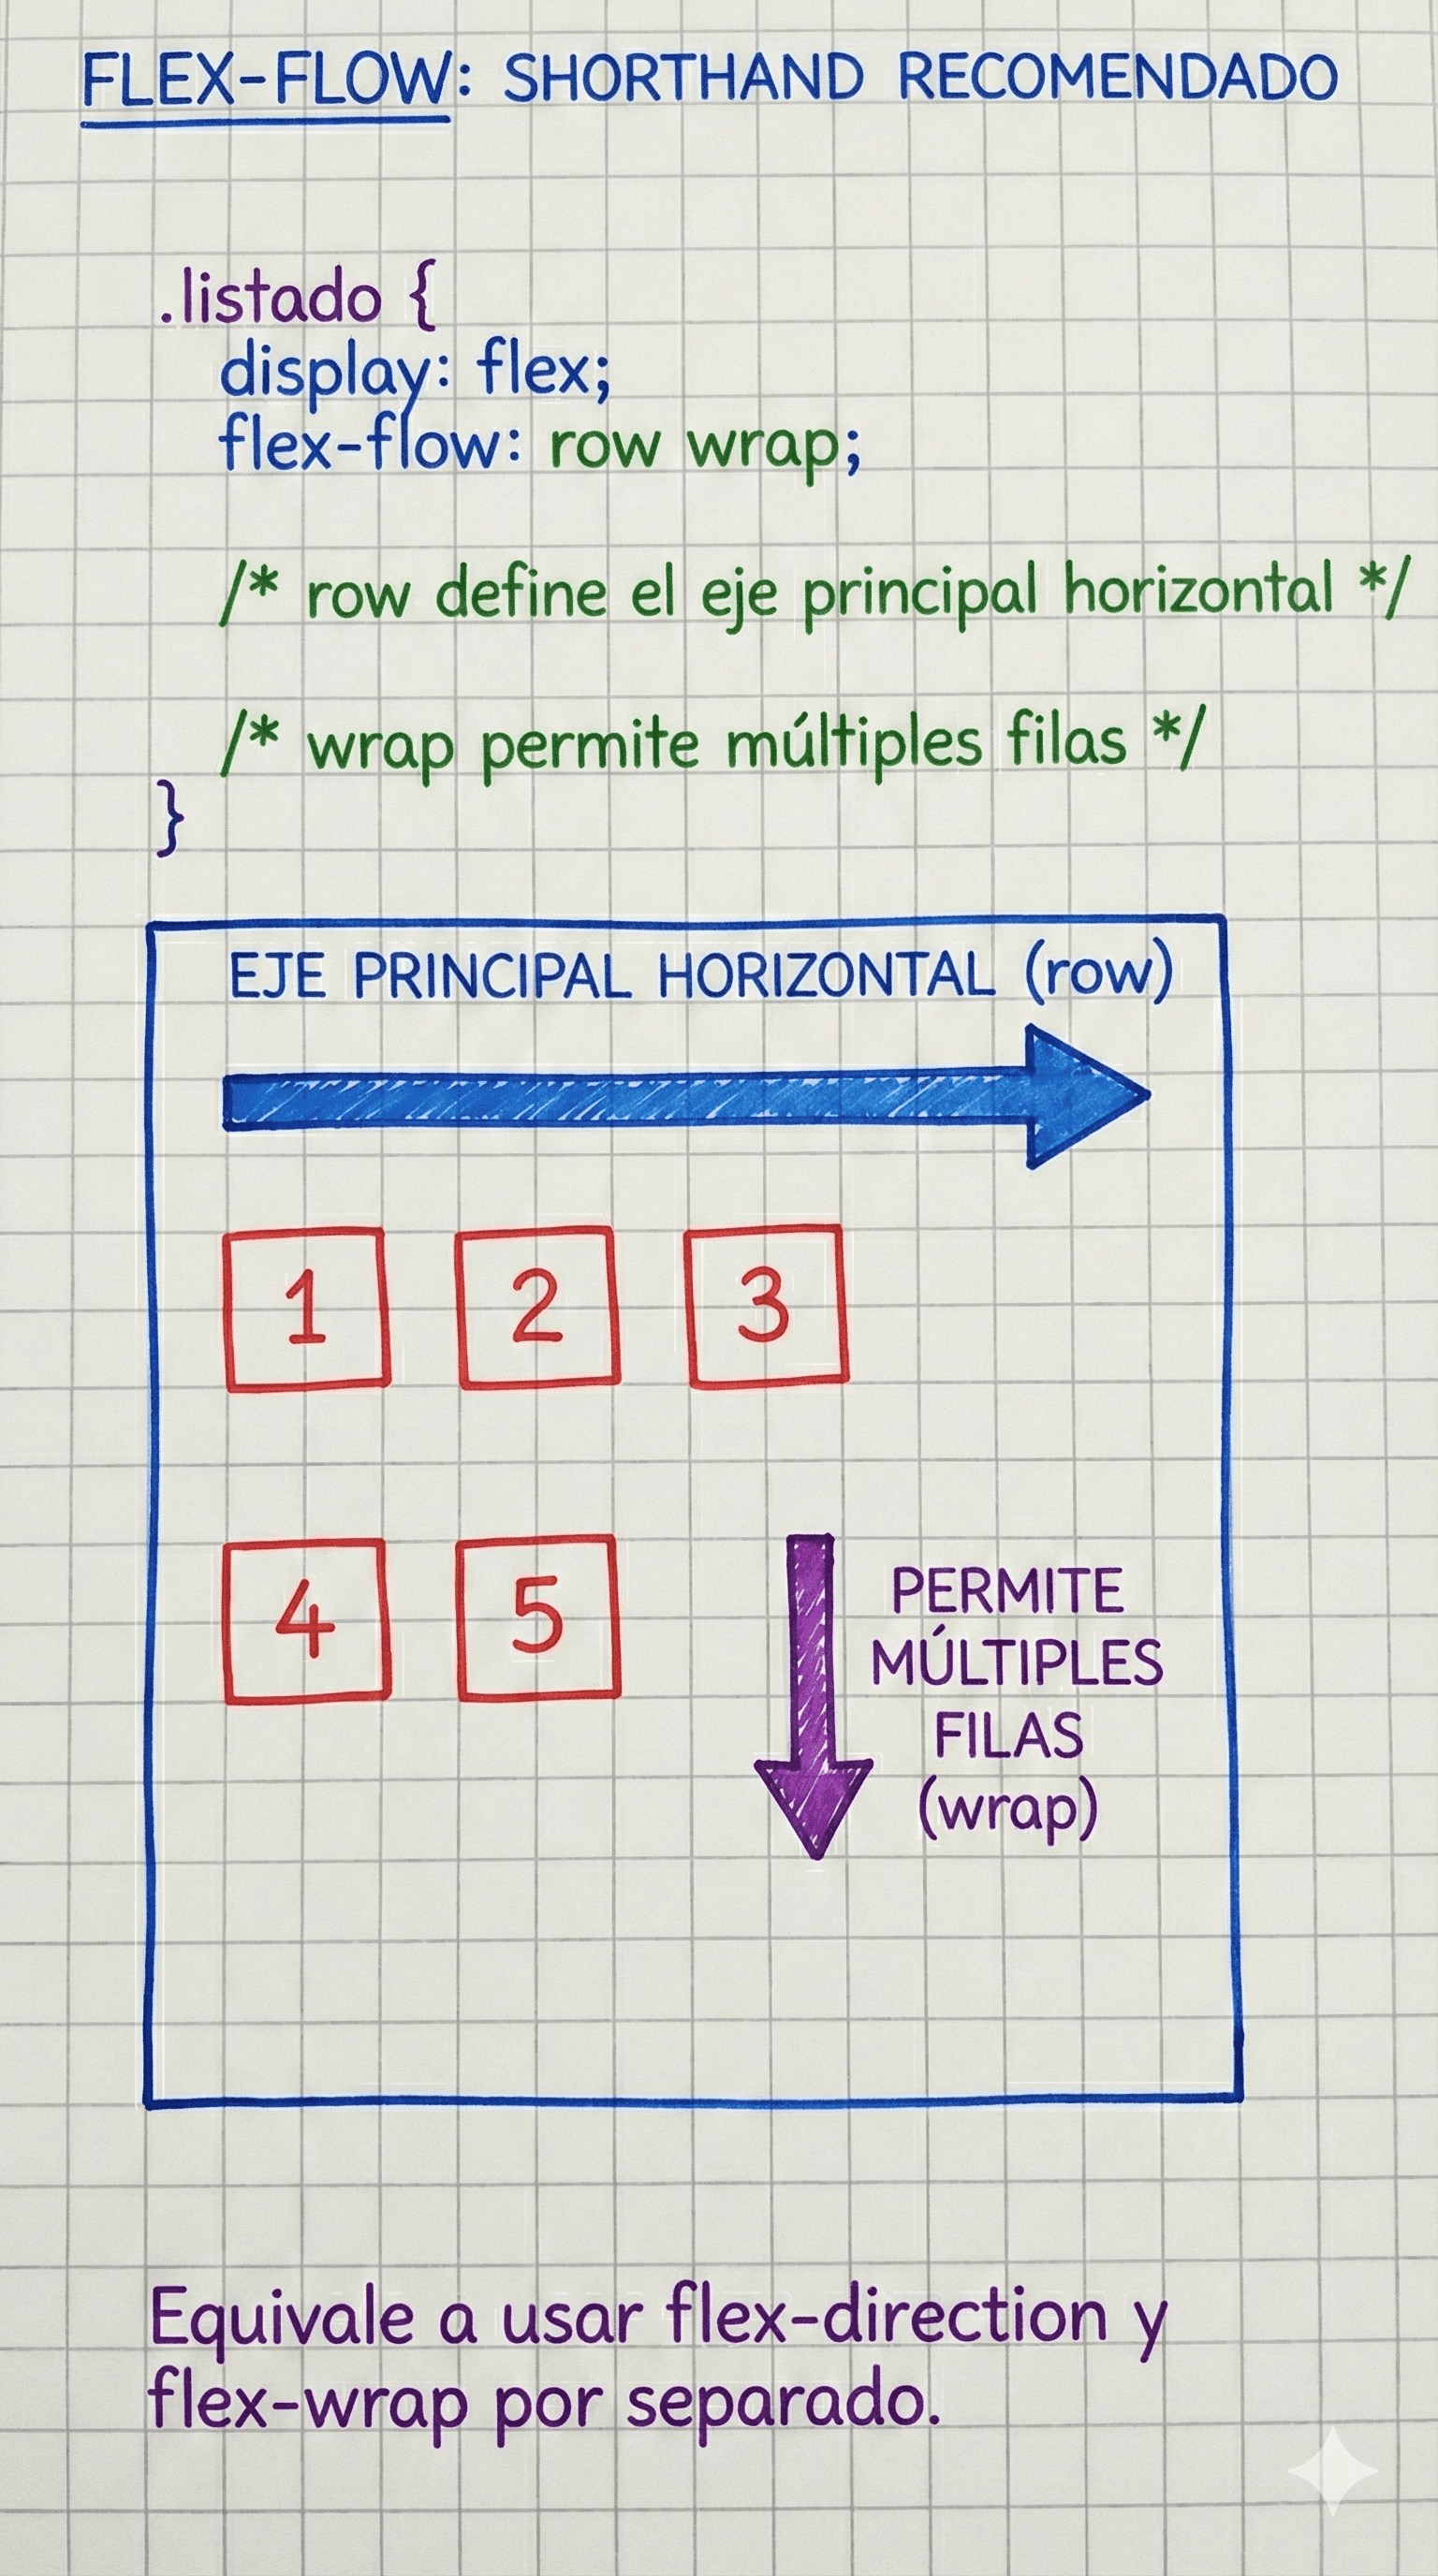 FLEX-FLOW: SHORTHAND RECOMENDADO
.listado {
display: flex;
flex-flow: row wrap;
/* row define el eje principal horizontal */
/* wrap permite múltiples filas */
}
EJE PRINCIPAL HORIZONTAL (row)
1 2 3
4 5
PERMITE
MÚLTIPLES
FILAS
(wrap)
Equivale a usar flex-direction y
flex-wrap por separado.